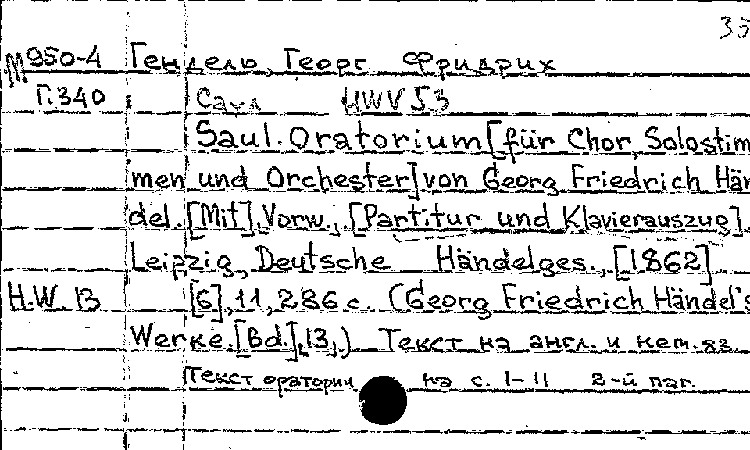 35
М950-4 Гендель, Георг Фридрих
Г.340 Саул HWV 53
Saul. Oratorium [für Chor, Solostim
men und Orchester] von Georg Friedrich Hän
del. [Mit] Vorw., [Partitur und Klavierauszug]
Leipzig, Deutsche Händelges., [1862]
H.W. 13 [6], 11, 286 с. (Georg Friedrich Händel's
Werke. [Bd.], 13,) Текст на англ. и нем. яз.
Текст оратории на с. I-II 2-й паг.